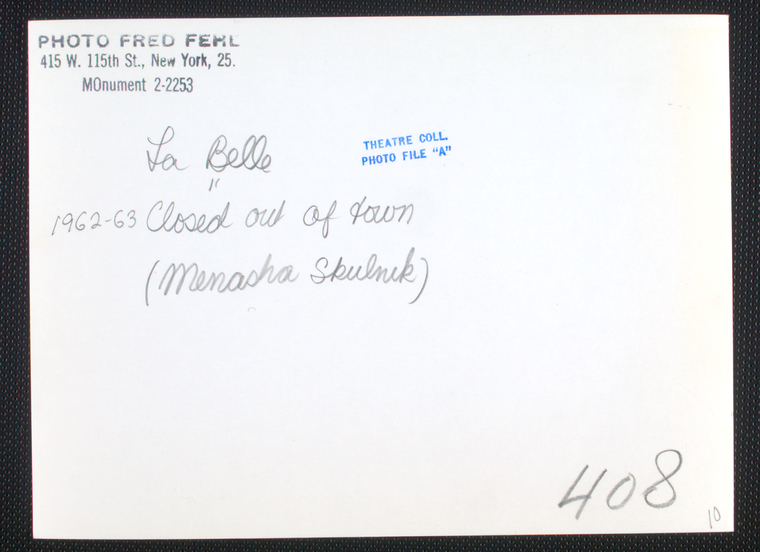 PHOTO FRED FEHL
415 W. 115th St., New York, 25.
MOnument 2-2253
THEATRE COLL.
PHOTO FILE "A"
La Belle
"
1962-63 Closed out of town
(Menasha Skulnik)
408
10